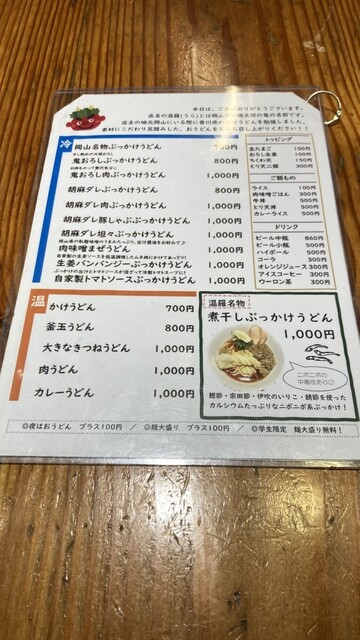 本日は、ご来店ありがとうございます。
素材にこだわり足踏みした、おうどんを
冷
岡山名物ぶっかけうどん 700円
鬼おろしぶっかけうどん 800円
鬼おろし肉ぶっかけうどん 1,000円
胡麻ダレぶっかけうどん 800円
胡麻ダレ肉ぶっかけうどん 1,000円
胡麻ダレ豚しゃぶぶっかけうどん 1,000円
胡麻ダレ坦々ぶっかけうどん 1,000円
肉味噌まぜうどん 1,000円
生姜バンバンジーぶっかけうどん 1,000円
自家製トマトソースぶっかけうどん 1,000円
温
かけうどん 700円
釜玉うどん 800円
大きなきつねうどん 1,000円
肉うどん 1,000円
カレーうどん 1,000円
トッピング
生たまご 100円
おろし生姜 100円
ちくわ天 150円
とり天二個 300円
ご飯もの
ライス 100円
肉味噌ごはん 300円
牛丼 500円
とり天丼 500円
カレーライス 500円
ドリンク
ビール中瓶 860円
ビール小瓶 500円
ハイボール 500円
コーラ 300円
オレンジジュース 300円
アイスコーヒー 300円
ウーロン茶 300円
温羅名物
煮干しぶっかけうどん
1,000円
ニボニボの
中毒性あり
鰹節・宗田節・伊吹のいりこ・鯖節を使った
カルシウムたっぷりなニボニボ系ぶっかけ！
◎夜はおうどん プラス100円 ／ ◎麺大盛り プラス100円 ／ ◎学生限定 麺大盛り無料！